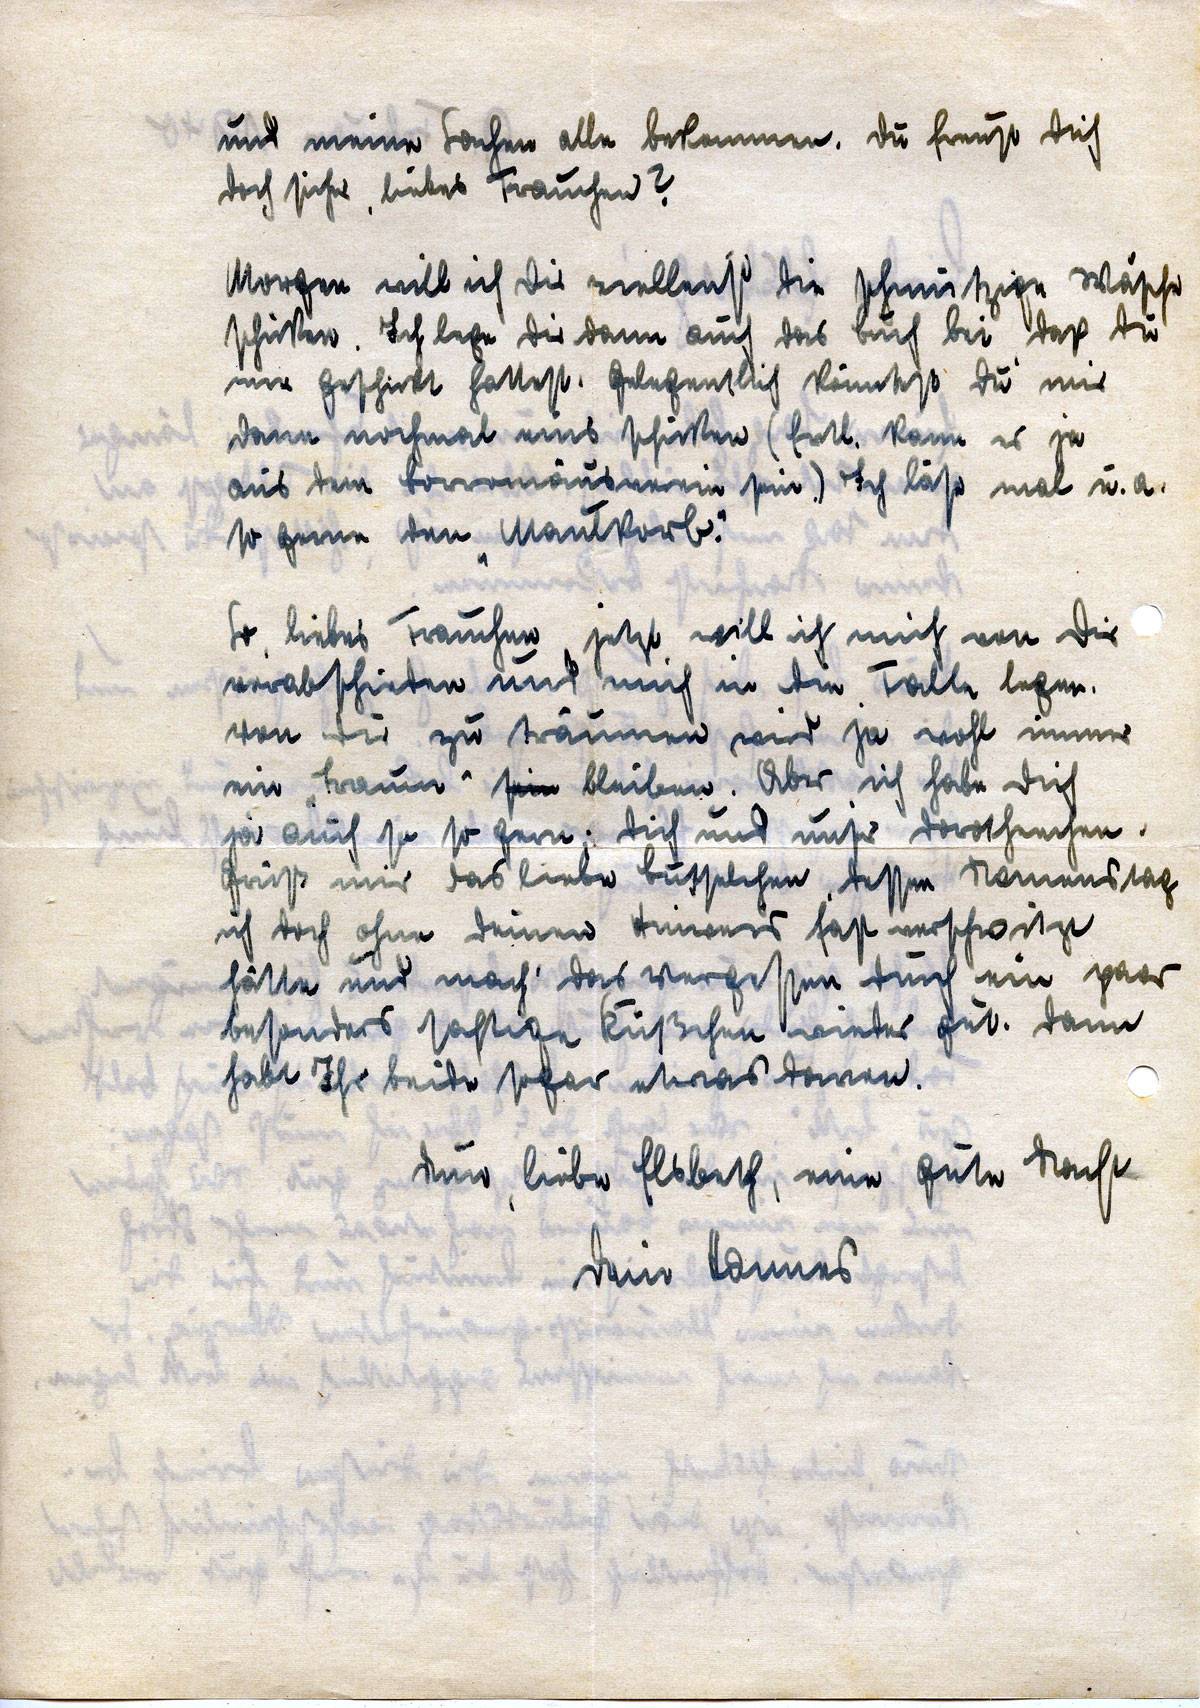 und meine Sachen alle bekommen. Du freust Dich
doch sicher, liebes Frauchen?
Morgen will ich Dir die schmutzige Wäsche
schicken. Ich lege Dir dann auch das Buch bei, daß Du
mir geschickt hattest. Gelegentlich könntest Du mir
dann nochmal eins schicken (Evtl. kann es ja
aus dem Borromäusverein sein.) Ich läse mal u.a.
so gerne den „Maulkorb".
So, liebes Frauchen, jetzt will ich mich von Dir
verabschieden und mich in die Falle legen.
Von Dir zu träumen wird ja wohl immer
ein „Traum" sein bleiben. Aber ich habe Dich
ja auch so so gern; Dich und unser Dorotheechen.
Grüß mir das liebe, dessen Namenstag
ich doch ohne Deinen Hinweis fast verschwitzt
hätte und mach' das Vergessen durch ein paar
besonders saftige Küßchen wieder gut. Dann
habt Ihr beide sogar etwas davon.
Nun, liebe Elsbeth, eine gute Nacht
Dein Hannes